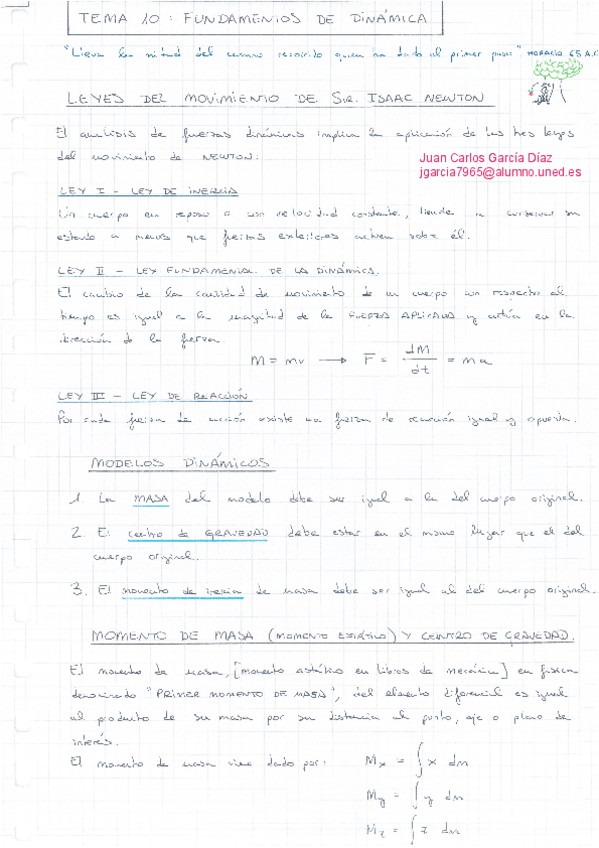 TEMA 10: FUNDAMENTOS DE DINÁMICA
"Lleva la mitad del camino recorrido quien ha dado el primer paso" HORACIO 65 A.C
LEYES DEL MOVIMIENTO DE SIR. ISAAC NEWTON
El análisis de fuerzas dinámicas implica la aplicación de las tres leyes
del movimiento de NEWTON:
Juan Carlos García Díaz
jgarcia7965@alumno.uned.es
LEY I - LEY DE INERCIA
Un cuerpo en reposo o con velocidad constante, tiende a conservar su
estado a menos que fuerzas exteriores actúen sobre él.
LEY II - LEY FUNDAMENTAL DE LA DINÁMICA.
El cambio de la cantidad de movimiento de un cuerpo con respecto al
tiempo es igual a la magnitud de la FUERZA APLICADA y actúa en la
dirección de la fuerza.
M = mv → F = dM/dt = ma
LEY III - LEY DE REACCIÓN
Por cada fuerza de acción existe una fuerza de reacción igual y opuesta.
MODELOS DINÁMICOS
1. La MASA del modelo debe ser igual a la del cuerpo original.
2. El centro de GRAVEDAD debe estar en el mismo lugar que el del
cuerpo original.
3. El momento de inercia de masa debe ser igual al del cuerpo original.
MOMENTO DE MASA (MOMENTO ESTÁTICO) Y CENTRO DE GRAVEDAD.
El momento de masa, [momento estático en libros de mecánica] en física
denominado "PRIMER MOMENTO DE MASA", del elemento diferencial es igual
al producto de su masa por su distancia al punto, eje o plano de
interés.
El momento de masa viene dado por: Mx = ∫ x dm
My = ∫ y dm
Mz = ∫ z dm